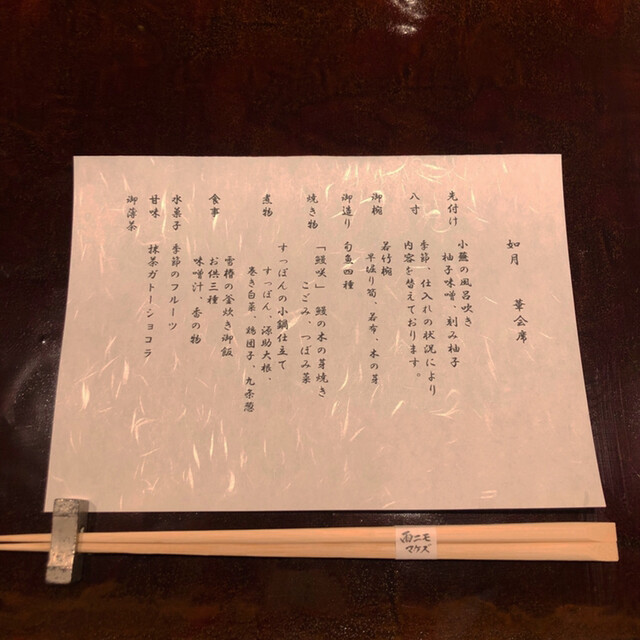 如月　華会席
先付け
小蕪の風呂吹き
柚子味噌、刻み柚子
八寸
季節、仕入れの状況により
内容を替えております。
御椀
若竹椀
早堀り筍、若布、木の芽
御造り
旬魚四種
焼き物
「鰻咲」鰻の木の芽焼き
こごみ、つぼみ菜
煮物
すっぽんの小鍋仕立て
すっぽん、源助大根、
巻き白菜、鶏団子、九条葱
食事
雪椿の釜炊き御飯
お供三種
味噌汁、香の物
水菓子　季節のフルーツ
甘味　抹茶ガトーショコラ
御薄茶
雨ニモ
マケズ